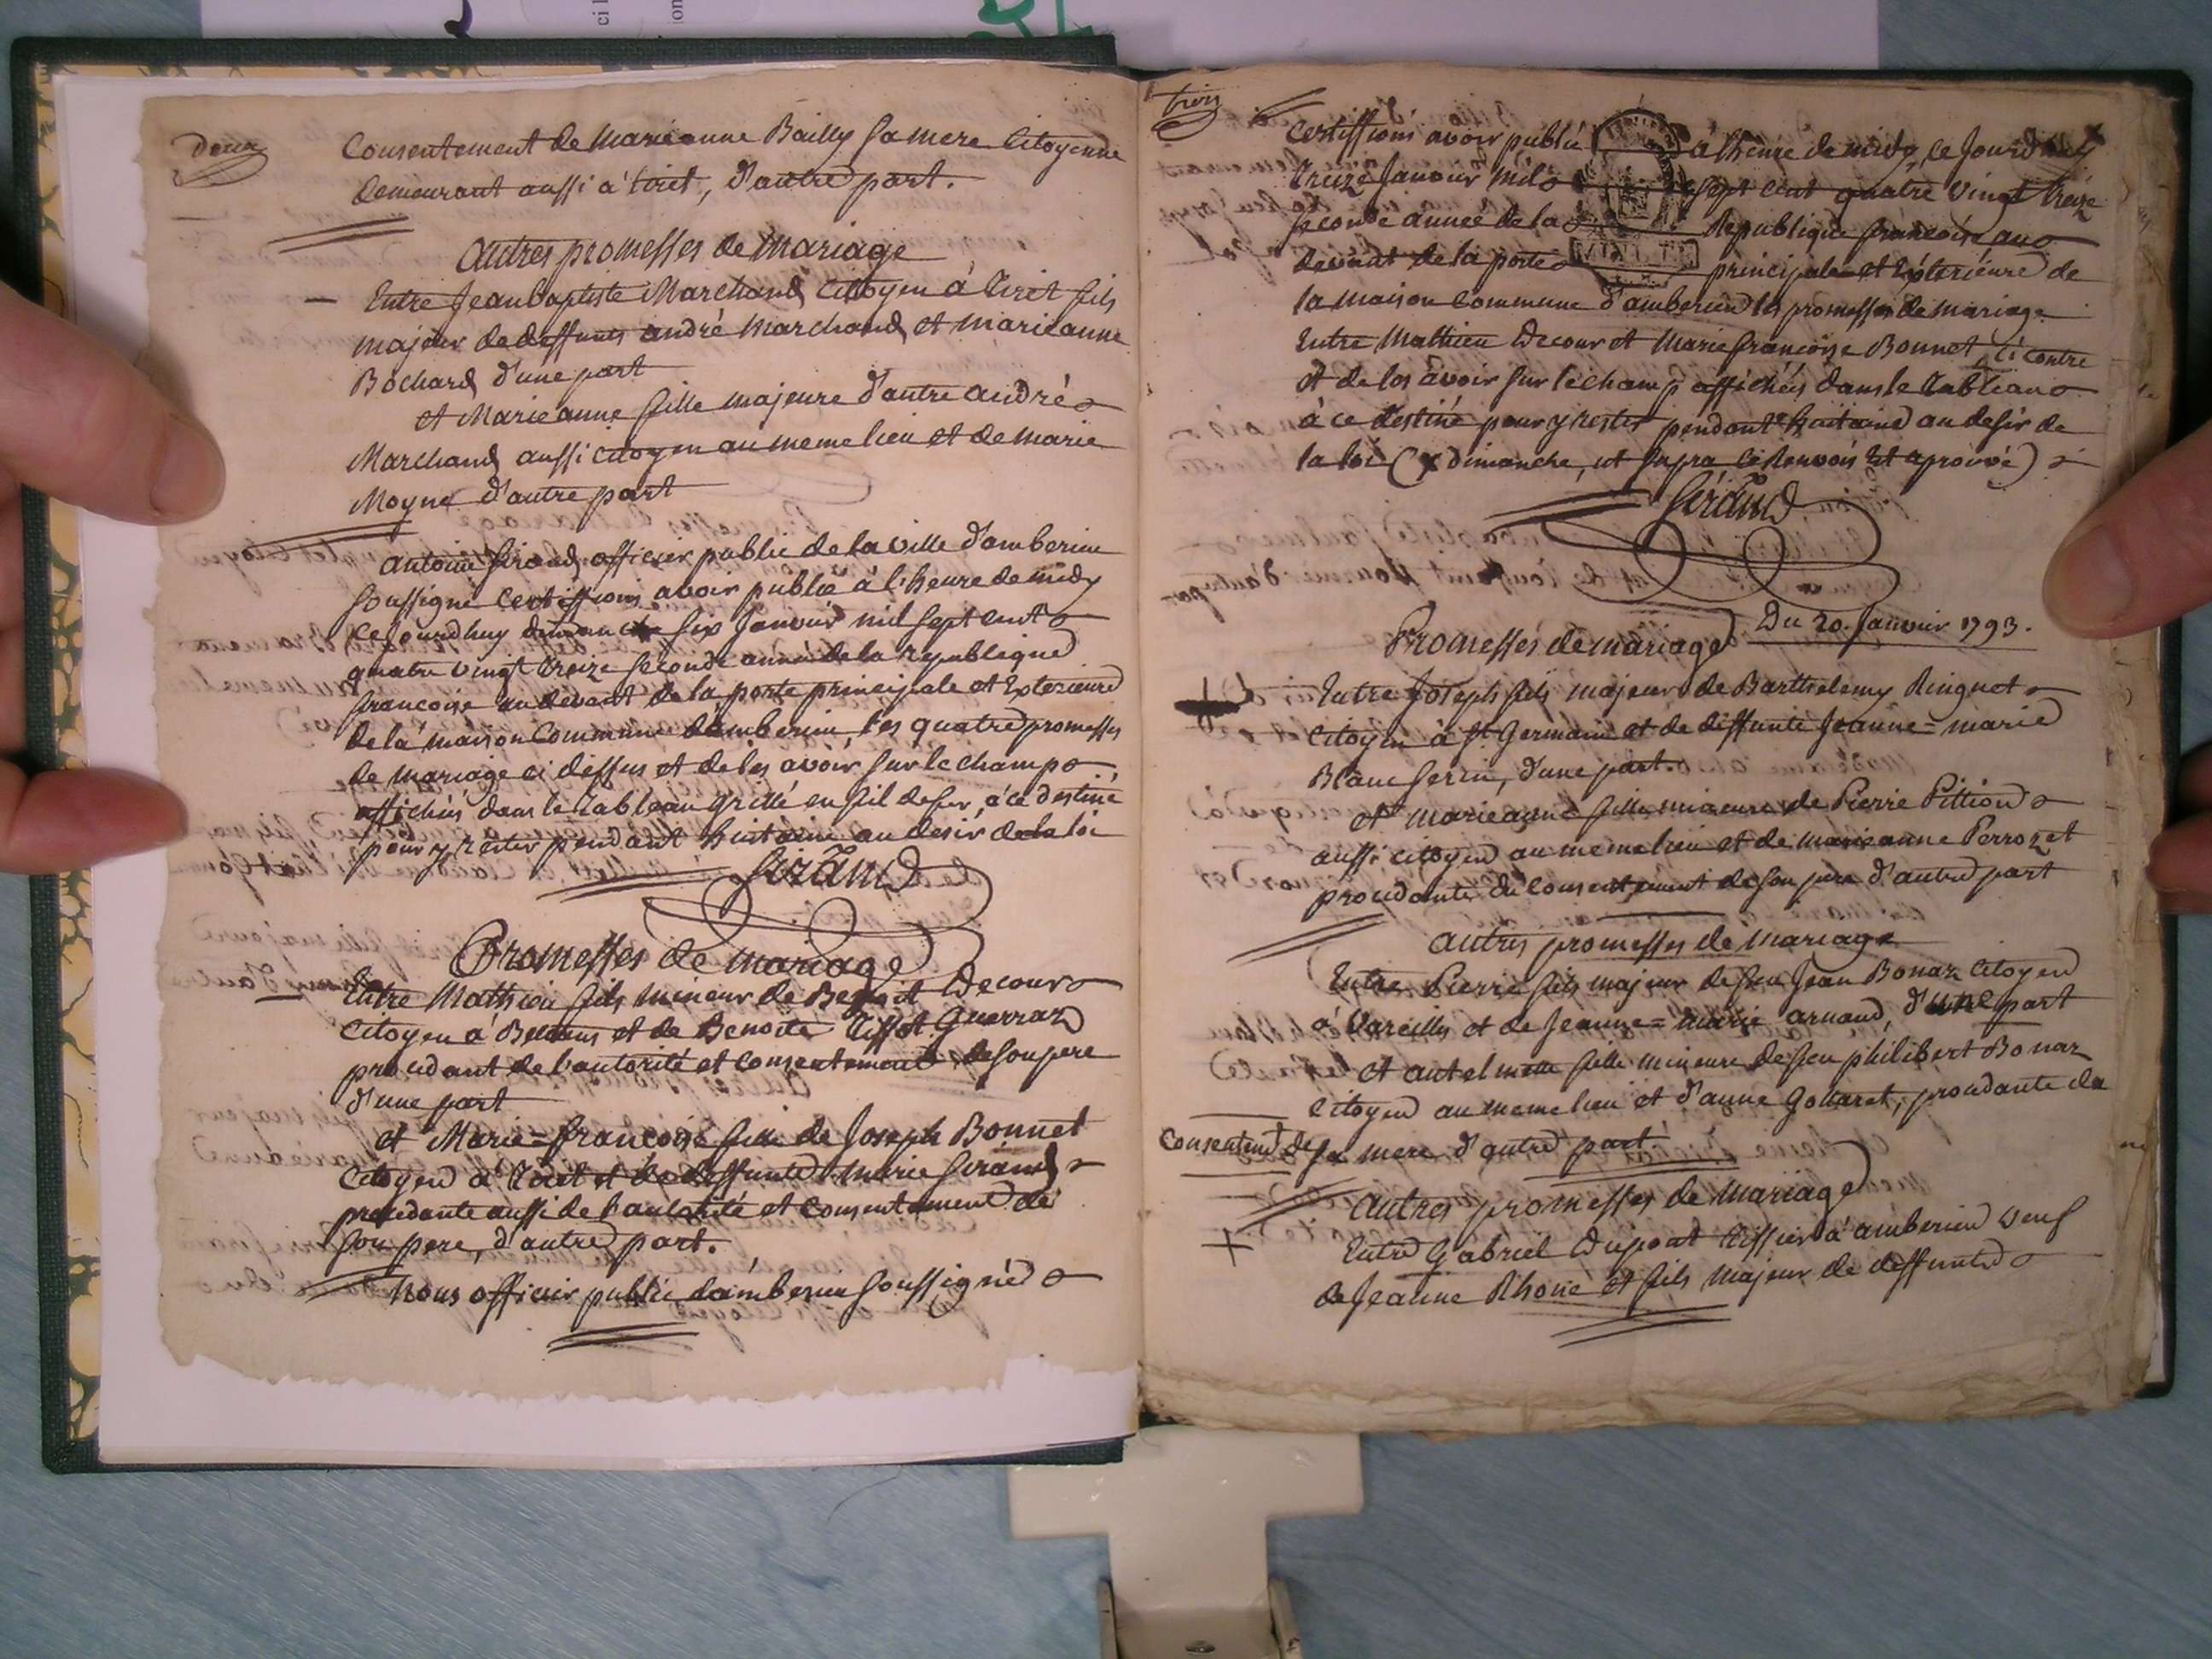 deux
Consentement de Marieanne Bailly Sa mere Citoyenne
demeurant aussi à tiret, d'autre part.
autres promesses de mariage
Entre Jeanbaptiste Marchand Citoyen à Tiret fils
majeur de deffunts andré Marchand et marieanne
Bochard d'une part
et Marieanne fille majeure d'autre andré
Marchand aussi citoyen au meme lieu et de marie
Moyne d'autre part
antoine Girand officier public de la ville d'amberieu
Soussigné Certiffions avoir publié à l'heure de midy
Cejourdhuy dimanche six Janvier mil sept cent
quatre vingt treize seconde année de la republique
francoise au devant de la porte principale et Exterieure
de la maison Commune damberieu, les quatre promesses
de mariage ci dessus et de les avoir sur le champ
affichées dans le tableau grillé en fil de fer, à ce destiné
pour y rester pendant huitaine au desir de la loi
Girand
Promesses de mariage
Entre Mathieu fils mineur de Benoit Decour
Citoyen à et de Benoite Tissot Guerraz
procedant de l'autorité et Consentement de son pere
d'une part
et Marie=francoise fille de Joseph Bonnet
Citoyen à Tiret et de deffunte Marie Girand
procedante aussi de l'autorité et Consentement de
son pere, d'autre part.
Nous officier public damberieu soussigné
trois
Certiffions avoir publié à l'heure de midy, ce Jourdhuy x
treize Janvier mil sept cent quatre vingt treize
seconde année de la Republique francoise au
devant de la porte principale et Exterieure de
la maison Commune d'amberieu les promesses de mariage
Entre Mathieu Decour et Marie francoise Bonnet ci contre
et de les avoir sur le champ affichées dans le tableau
à ce destiné pour y rester pendant huitaine au desir de
la loi (x dimanche, ut supra ce Renvois Est aprouvé)
Girand
Promesses de mariage Du 20. Janvier 1793.
Entre Joseph fils majeur de Barthelemy Ringuet
Citoyen à St. Germain et de deffunte Jeanne=marie
Blanc Gerin, d'une part.
et marieanne fille mineure de Pierre Pittion
aussi citoyen au meme lieu et de marieanne Perrozet
procedante du Consentement de son pere d'autre part
autres promesses de mariage
Entre Pierre fils majeur de feu Jean Bonaz Citoyen
à Vareilles et de Jeanne=marie arnaud, d'une part
et antelmette fille mineure de feu philibert Bonaz
Citoyen au meme lieu et d'anne Gottaret, procedante du
Consentemt. de sa mere d'autre part
autres promesses de mariage
Entre Gabriel Dupont Tissier à amberieu veuf
de Jeanne Rhoné et fils majeur de deffunte